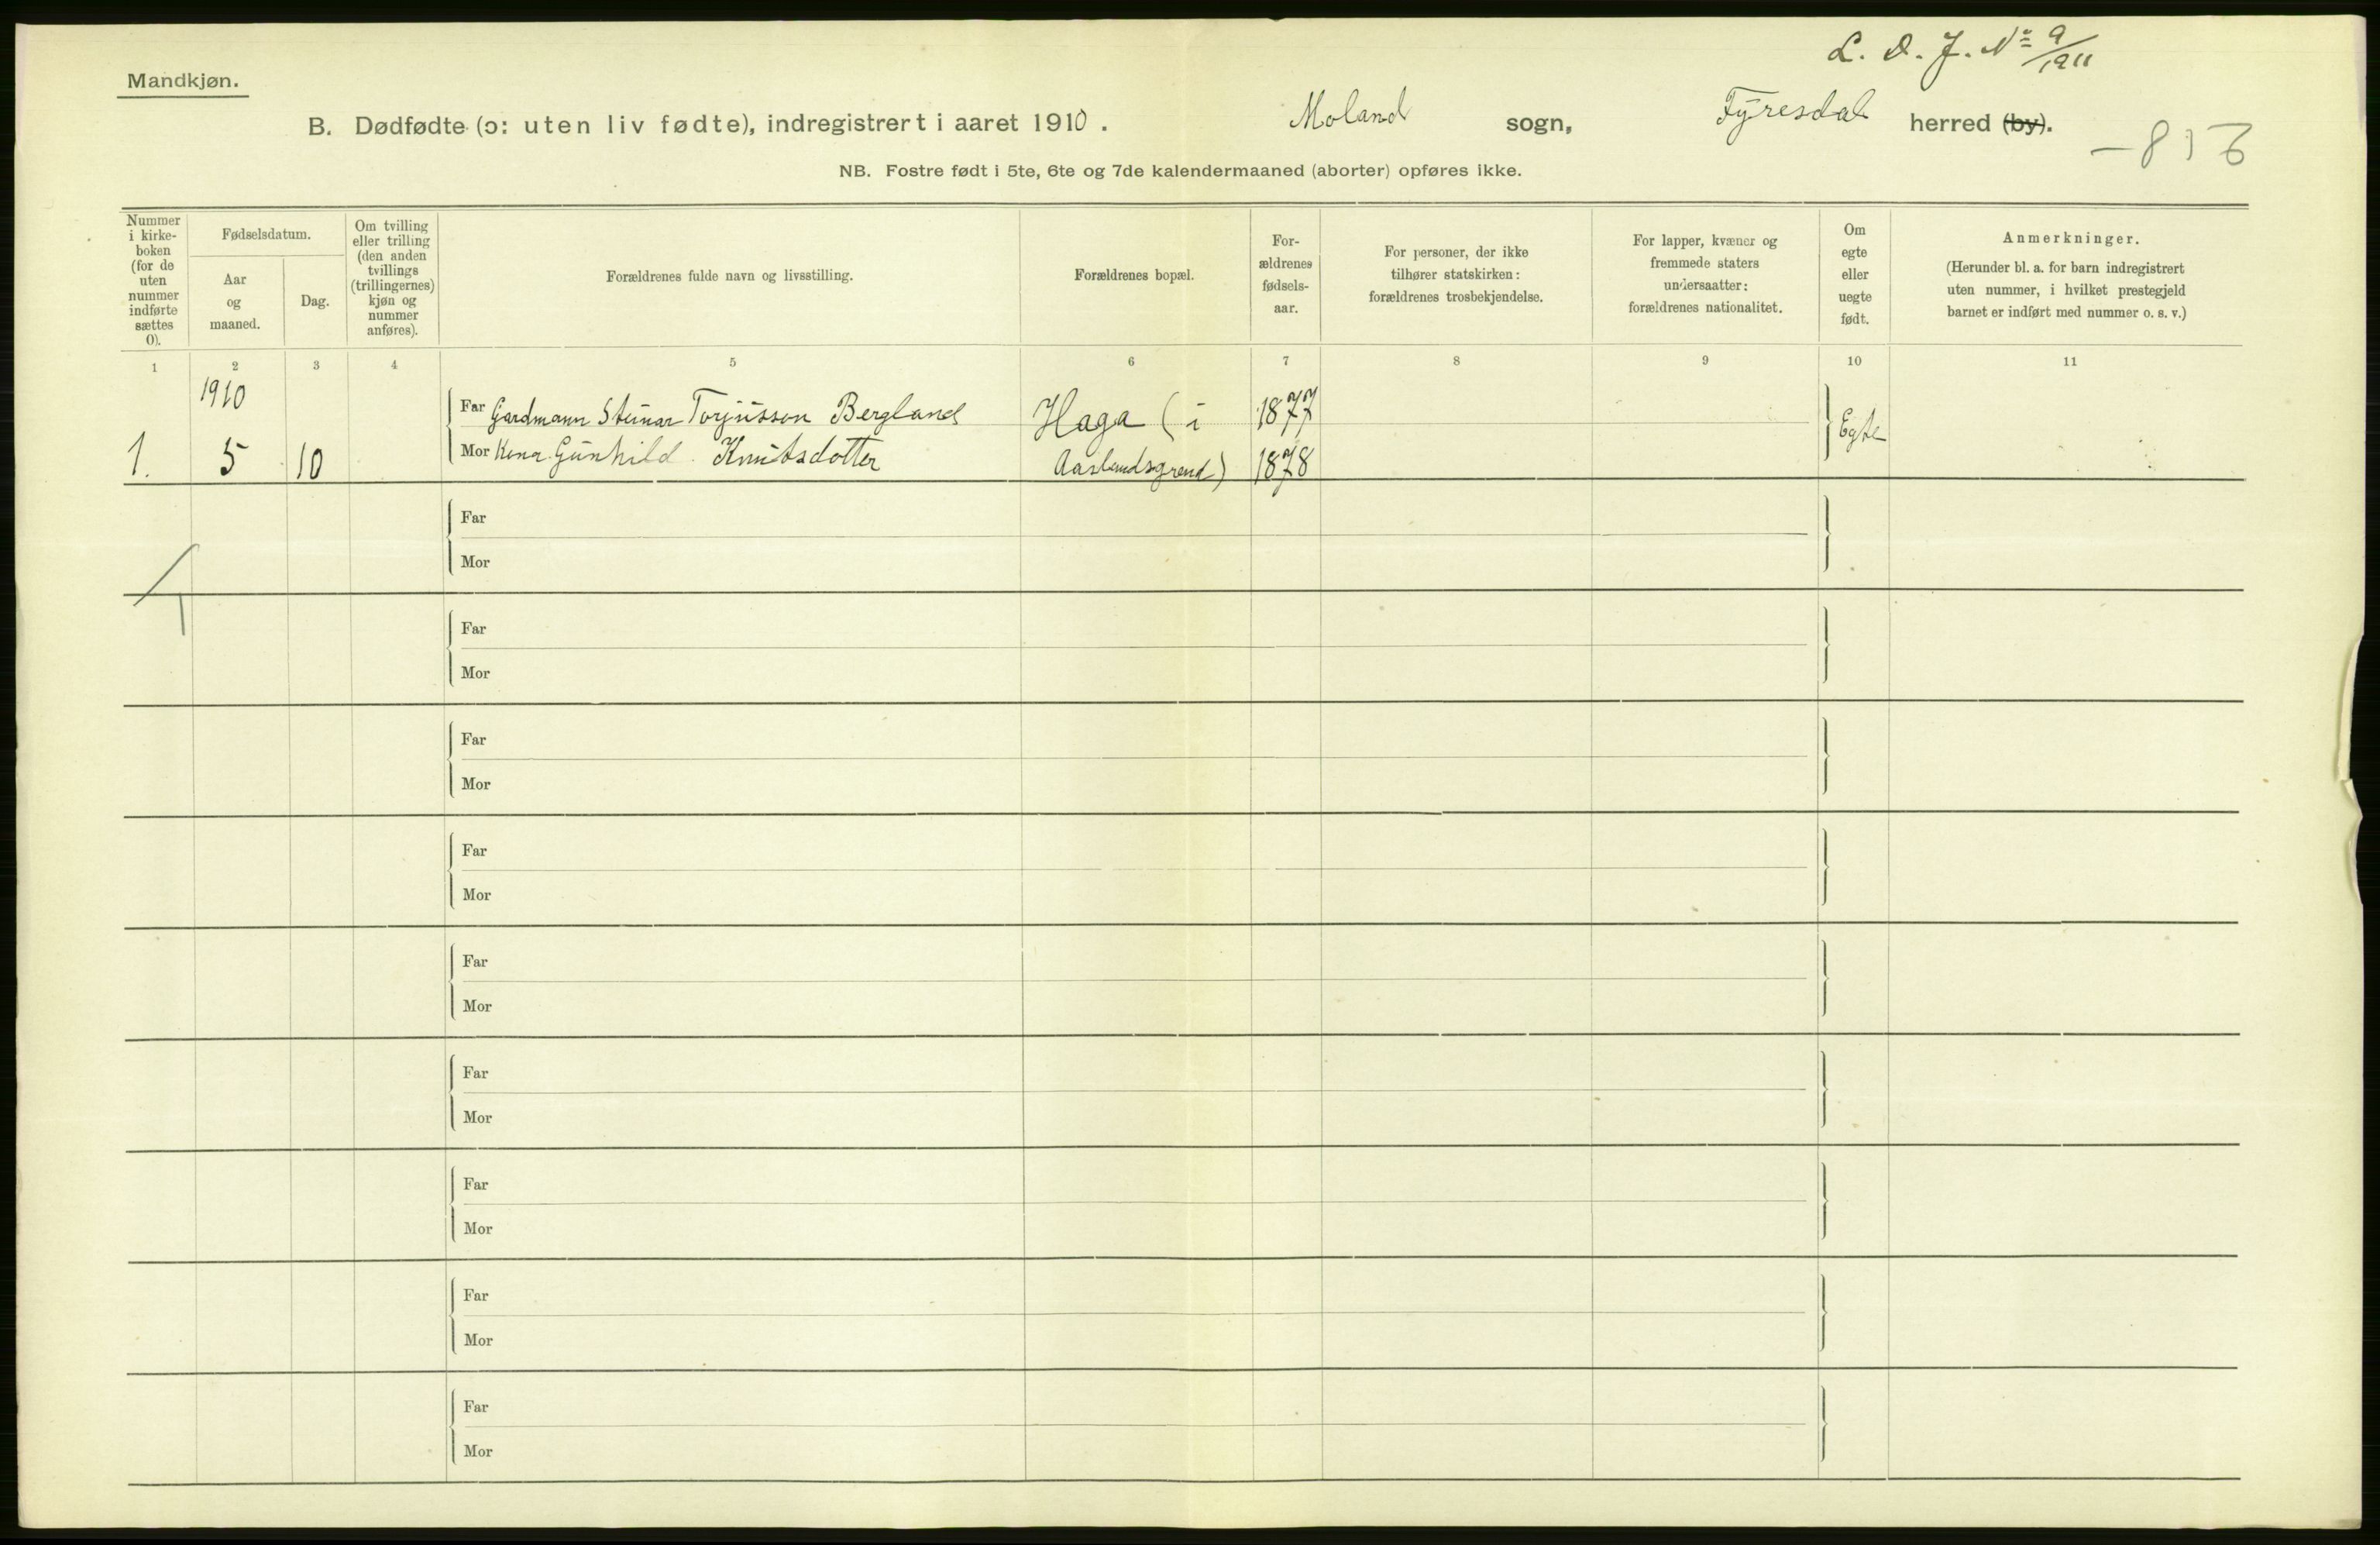 L. D. J. No 9/1911
Mandkjøn.
B. Dødfødte (ɔ: uten liv fødte), indregistrert i aaret 1910. Moland sogn, Fyresdal herred (by).
- 813
NB. Fostre født i 5te, 6te og 7de kalendermaaned (aborter) opføres ikke.
Nummer
i kirke-
boken
(for de
uten
nummer
indførte
sættes
0).
Fødselsdatum.
Aar
og
maaned.
Dag.
Om tvilling
eller trilling
(den anden
tvillings
(trillingernes)
kjøn og
nummer
anføres).
Forældrenes fulde navn og livsstilling.
Forældrenes bopæl.
For-
ældrenes
fødsels-
aar.
For personer, der ikke
tilhører statskirken:
forældrenes trosbekjendelse.
For lapper, kvæner og
fremmede staters
undersaatter:
forældrenes nationalitet.
Om
egte
eller
uegte
født.
Anmerkninger.
(Herunder bl. a. for barn indregistrert
uten nummer, i hvilket prestegjeld
barnet er indført med nummer o. s. v.)
1 2 3 4 5 6 7 8 9 10 11
1910
Far Gardmann Steinar Torjusson Bergland Haga (i 1877
Egte
1. 5 10 Mor Kona Gunhild Knutsdotter Aaslandsgrend) 1878
Far
Mor
Far
Mor
Far
Mor
Far
Mor
Far
Mor
Far
Mor
Far
Mor
Far
Mor
Far
Mor